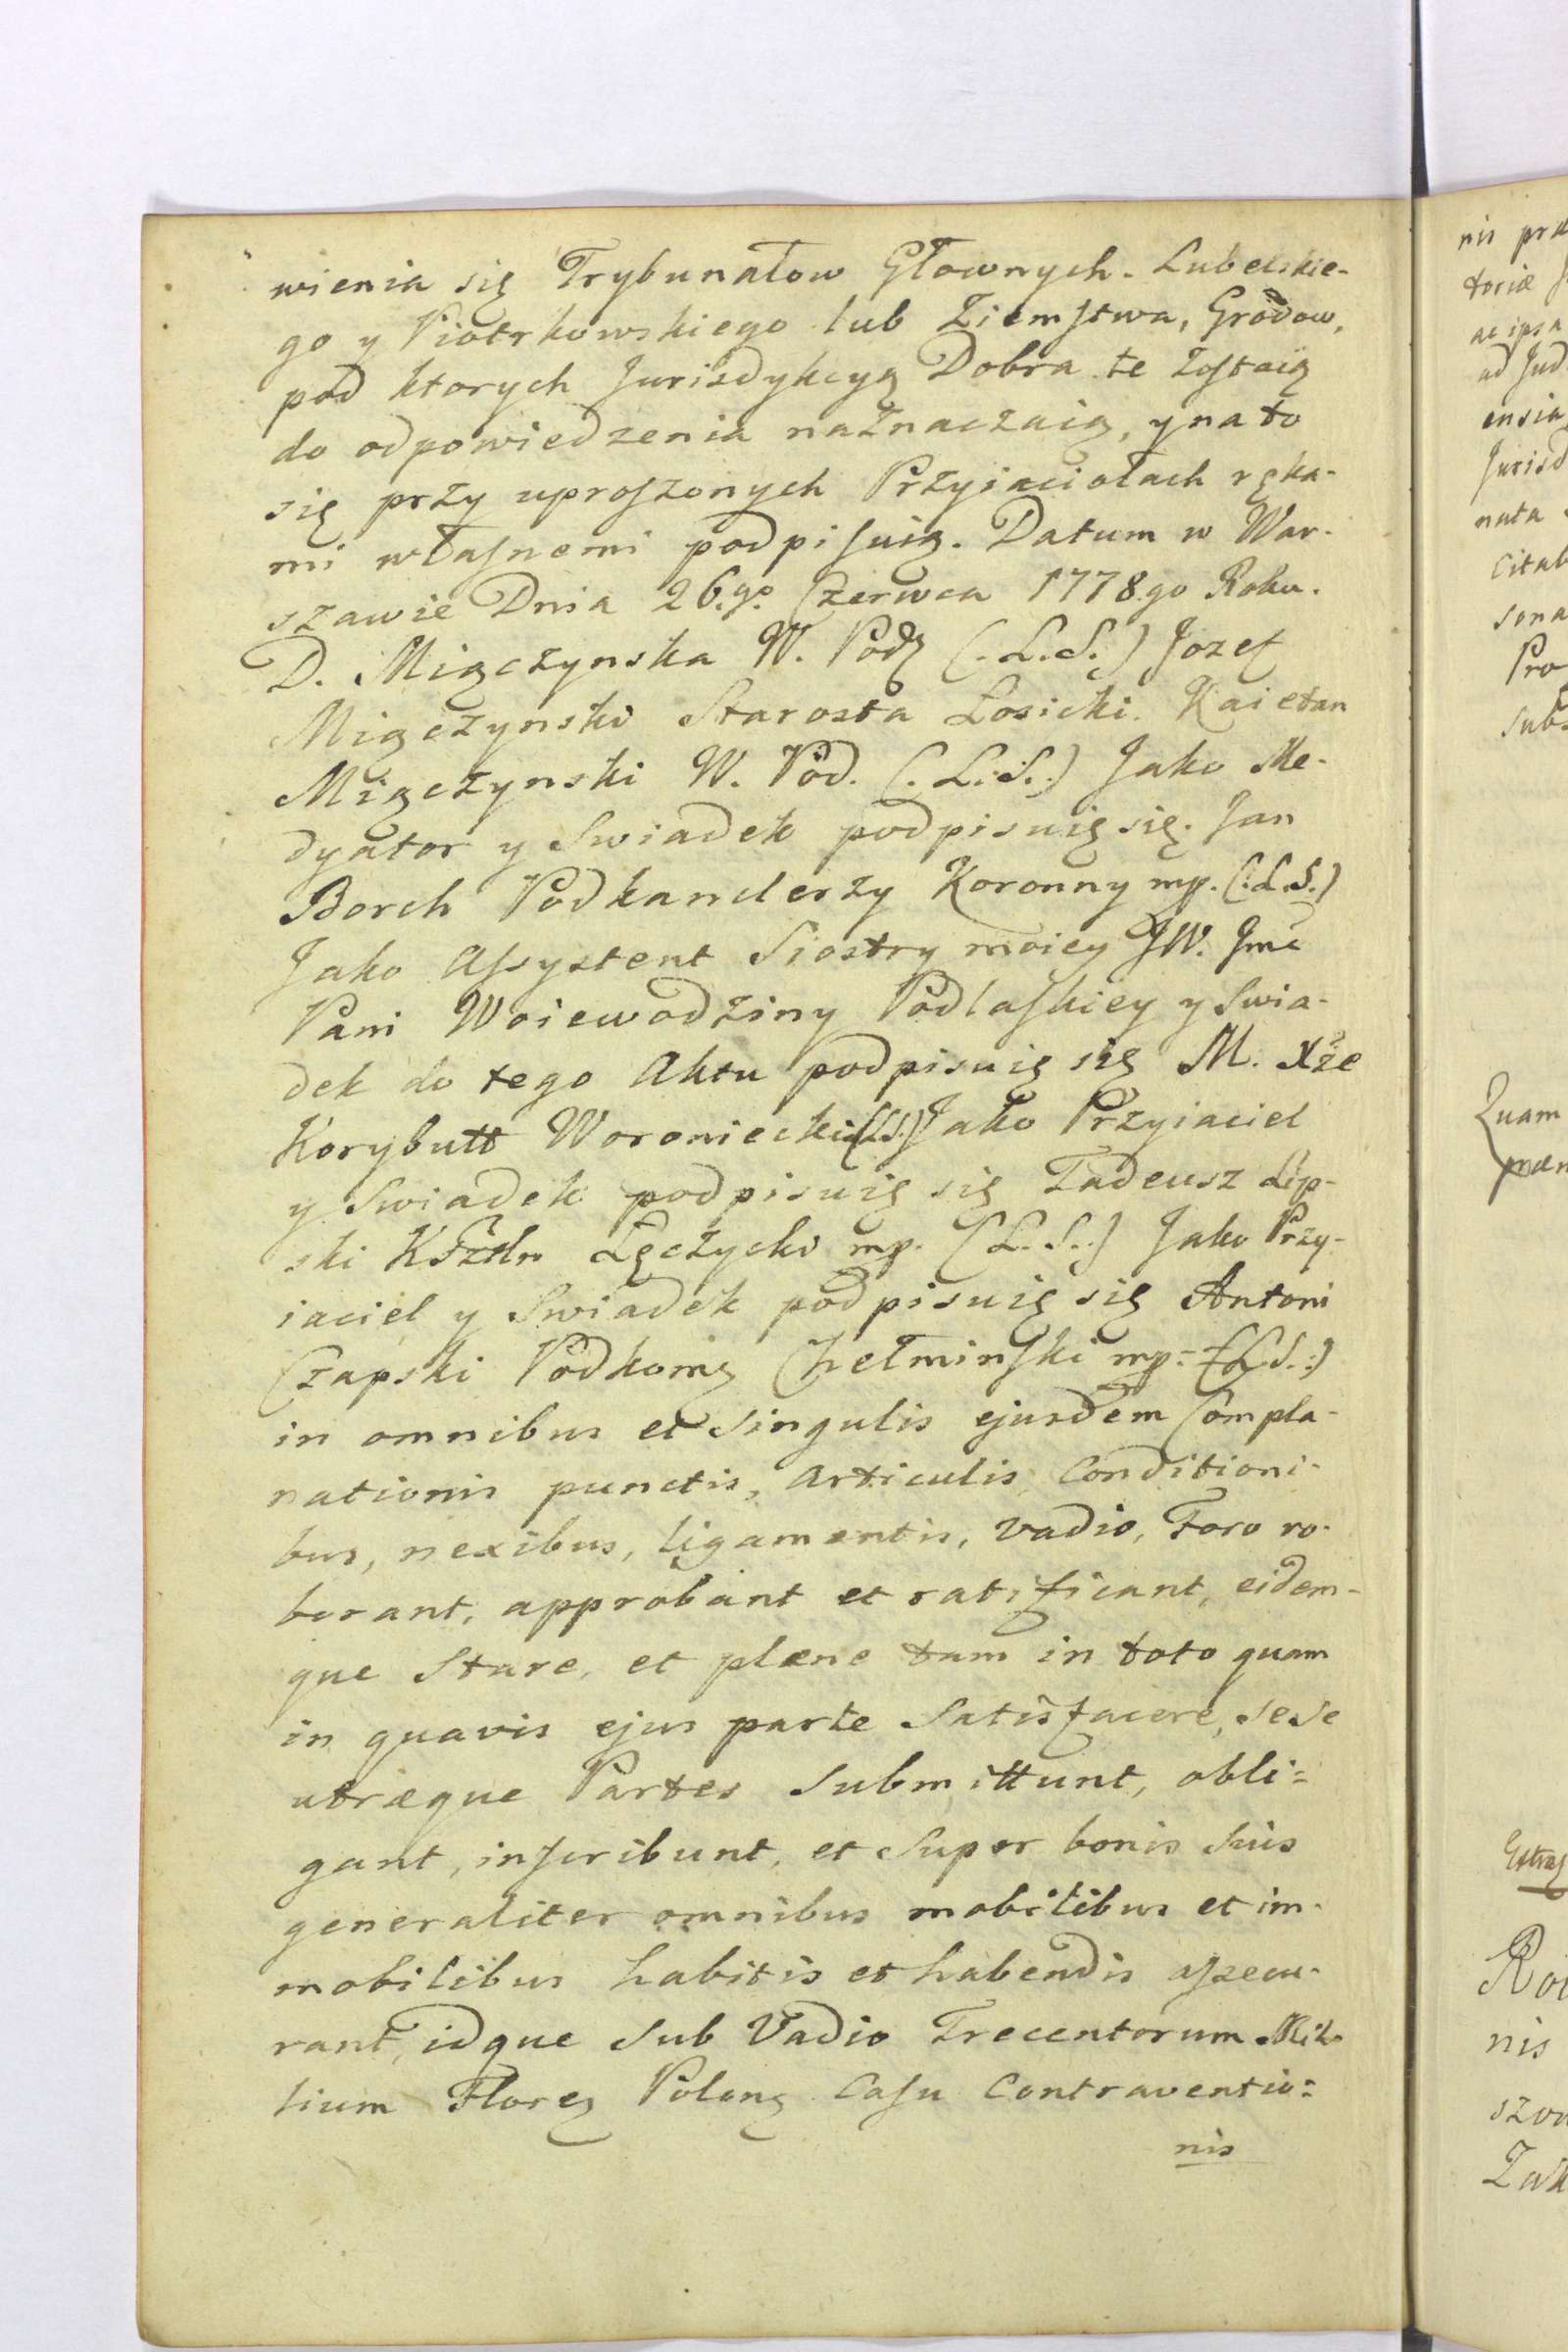 wienia się Trybunałow Głownych. Lubelskie-
go y Piotrkowskiego lub Ziemstwa, Grodow,
pod ktorych Jurisdykcyą Dobra te zostaią
do odpowiedzenia naznaczaią, y na to
się przy uproszonych Przyiaciołach ręka-
mi własnemi podpisuią. Datum w War-
szawie Dnia 26.go Czerwca 1778.go Roku.
D. Miączynska W. Podl (.L.S.) Jozef
Miączynski Starosta Łosicki. Kaietan
Miączynski W. Pod. (.L.S.) Jako Me-
dyator y Swiadek podpisuię się. Jan
Borch Podkanclerzy Koronny mp. (:L.S.)
Jako Assystent Siostry moiey JW. Jmć
Pani Woiewodziny Podlaskiey y Swia-
dek do tego Aktu podpisuię się M. Xże
Korybutt Woroniecki (L.S.) Jako Przyiaciel
y Swiadek podpisuię się Tadeusz Lip-
ski KSztln Łęczycki mp. (L.S.) Jako Przy-
iaciel y Swiadek podpisuię się Antoni
Czapski Podkom Chełminski mp. (L.S.:)
in omnibus et Singulis ejusdem Compla-
nationis punctis, Articulis Conditioni-
bus, nexibus, ligamentis, Vadio, Foro ro-
borant, approbant et ratificant, eidem-
que Stare, et plene tam in toto quam
in quavis ejus parte Satisfacere, sese
utræque Partes Submittunt, obli=
gant, inscribunt, et Super bonis Suis
generaliter omnibus mobilibus et im-
mobilibus habitis et habendis assecu-
rant, idque Sub Vadio Trecentorum Mil-
lium Flor Polon Casu Contraventio=
nis
nis præ
toriæ
ac ipsa
ad Jud
ensia
Jurisd
nata
Citab
sona
Pro
Subs
Quam
Roi
nis
szo
Zak